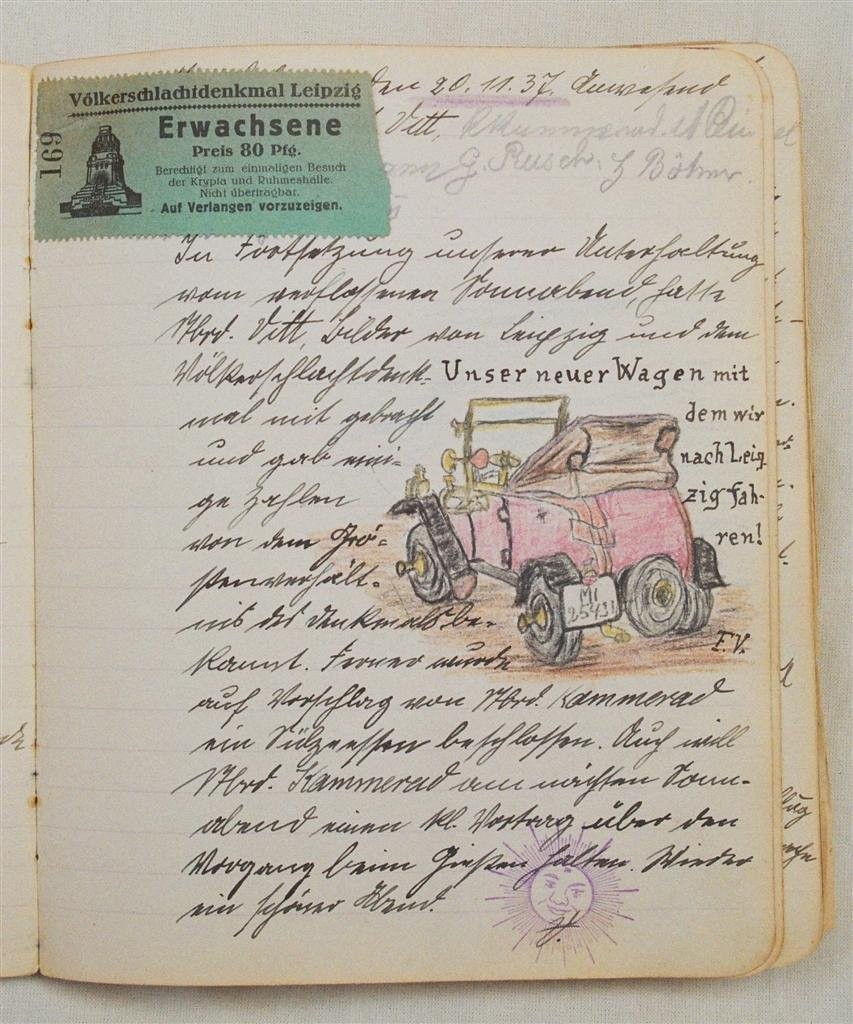 Völkerschlachtdenkmal Leipzig
169
Erwachsene
Preis 80 Pfg.
Berechtigt zum einmaligen Besuch
der Krypta und Ruhmeshalle.
Nicht übertragbar.
Auf Verlangen vorzuzeigen.
den 20.11.37. Anwesend
Vitt, Kammerad
G. Rusch. Böhmer
In Fortsetzung unserer Unterhaltung
vom verflossenen Sonnabend, hatte
Nbrd. Vitt, Bilder von Leipzig und dem
Völkerschlachtdenk-
mal mit gebracht
und gab eini-
ge Zahlen
von dem Grö-
ßenverhält-
nis des Denkmals be-
kannt. Ferner wurde
auf Vorschlag von Nbrd. Kammerad
ein Sülzeessen beschlossen. Auch will
Nbrd. Kammerad am nächsten Sonn-
abend einen kl. Vortrag über den
Vorgang beim Gießen halten. Wieder
ein schöner Abend.
Unser neuer Wagen mit
dem wir
nach Leip
zig fah-
ren!
MI
25431
F.V.